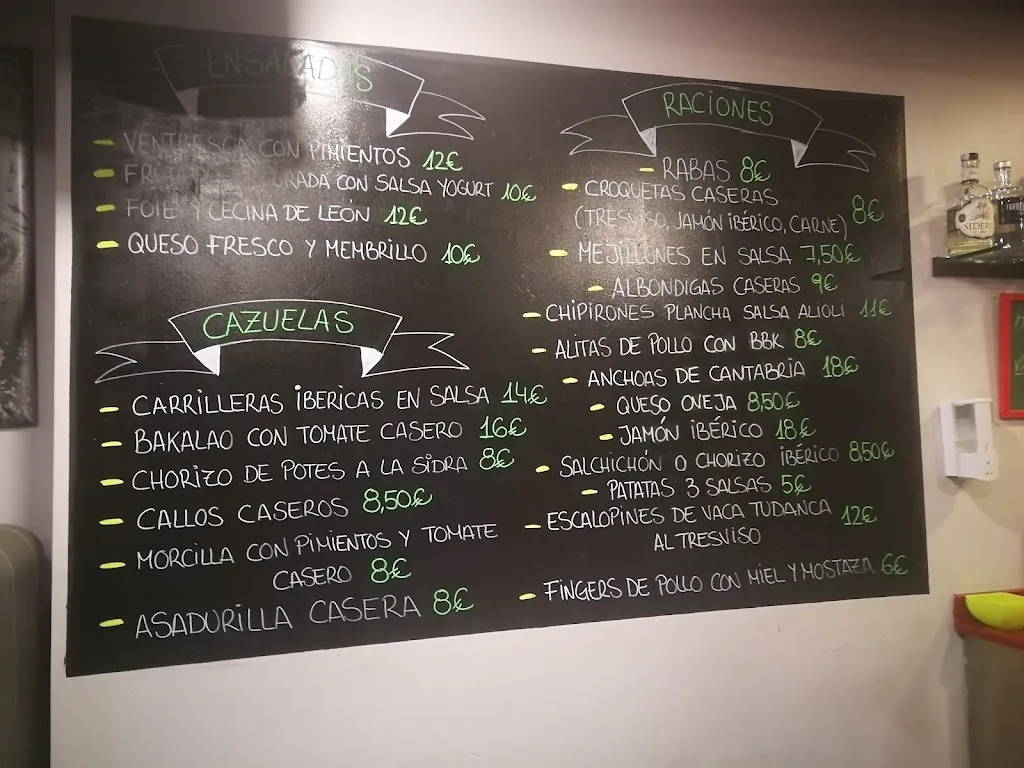 ENSALADAS
- VENTRESCA CON PIMIENTOS 12€
- CON SALSA YOGURT 10€
- FOIE Y CECINA DE LEÓN 12€
- QUESO FRESCO Y MEMBRILLO 10€
CAZUELAS
- CARRILLERAS IBERICAS EN SALSA 14€
- BAKALAO CON TOMATE CASERO 16€
- CHORIZO DE POTES A LA SIDRA 8€
- CALLOS CASEROS 8,50€
- MORCILLA CON PIMIENTOS Y TOMATE
CASERO 8€
- ASADURILLA CASERA 8€
RACIONES
- RABAS 8€
- CROQUETAS CASERAS
(TRESVISO, JAMÓN IBÉRICO, CARNE) 8€
- MEJILLONES EN SALSA 7,50€
- ALBONDIGAS CASERAS 9€
- CHIPIRONES PLANCHA SALSA ALIOLI 11€
- ALITAS DE POLLO CON BBK 8€
- ANCHOAS DE CANTABRIA 18€
- QUESO OVEJA 8,50€
- JAMÓN IBÉRICO 18€
- SALCHICHÓN O CHORIZO IBÉRICO 8,50€
- PATATAS 3 SALSAS 5€
- ESCALOPINES DE VACA TUDANCA 12€
AL TRESVISO
- FINGERS DE POLLO CON MIEL Y MOSTAZA 6€